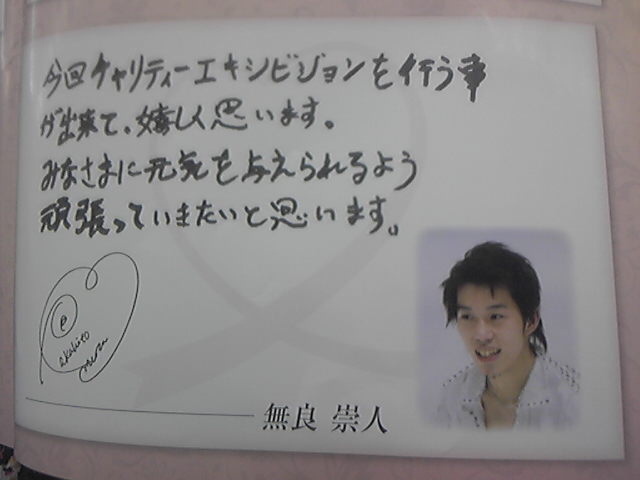 今回チャリティーエキシビジョンを行う事
が出来て、嬉しく思います。
みなさまに元気を与えられるよう
頑張っていきたいと思います。
無良 崇人